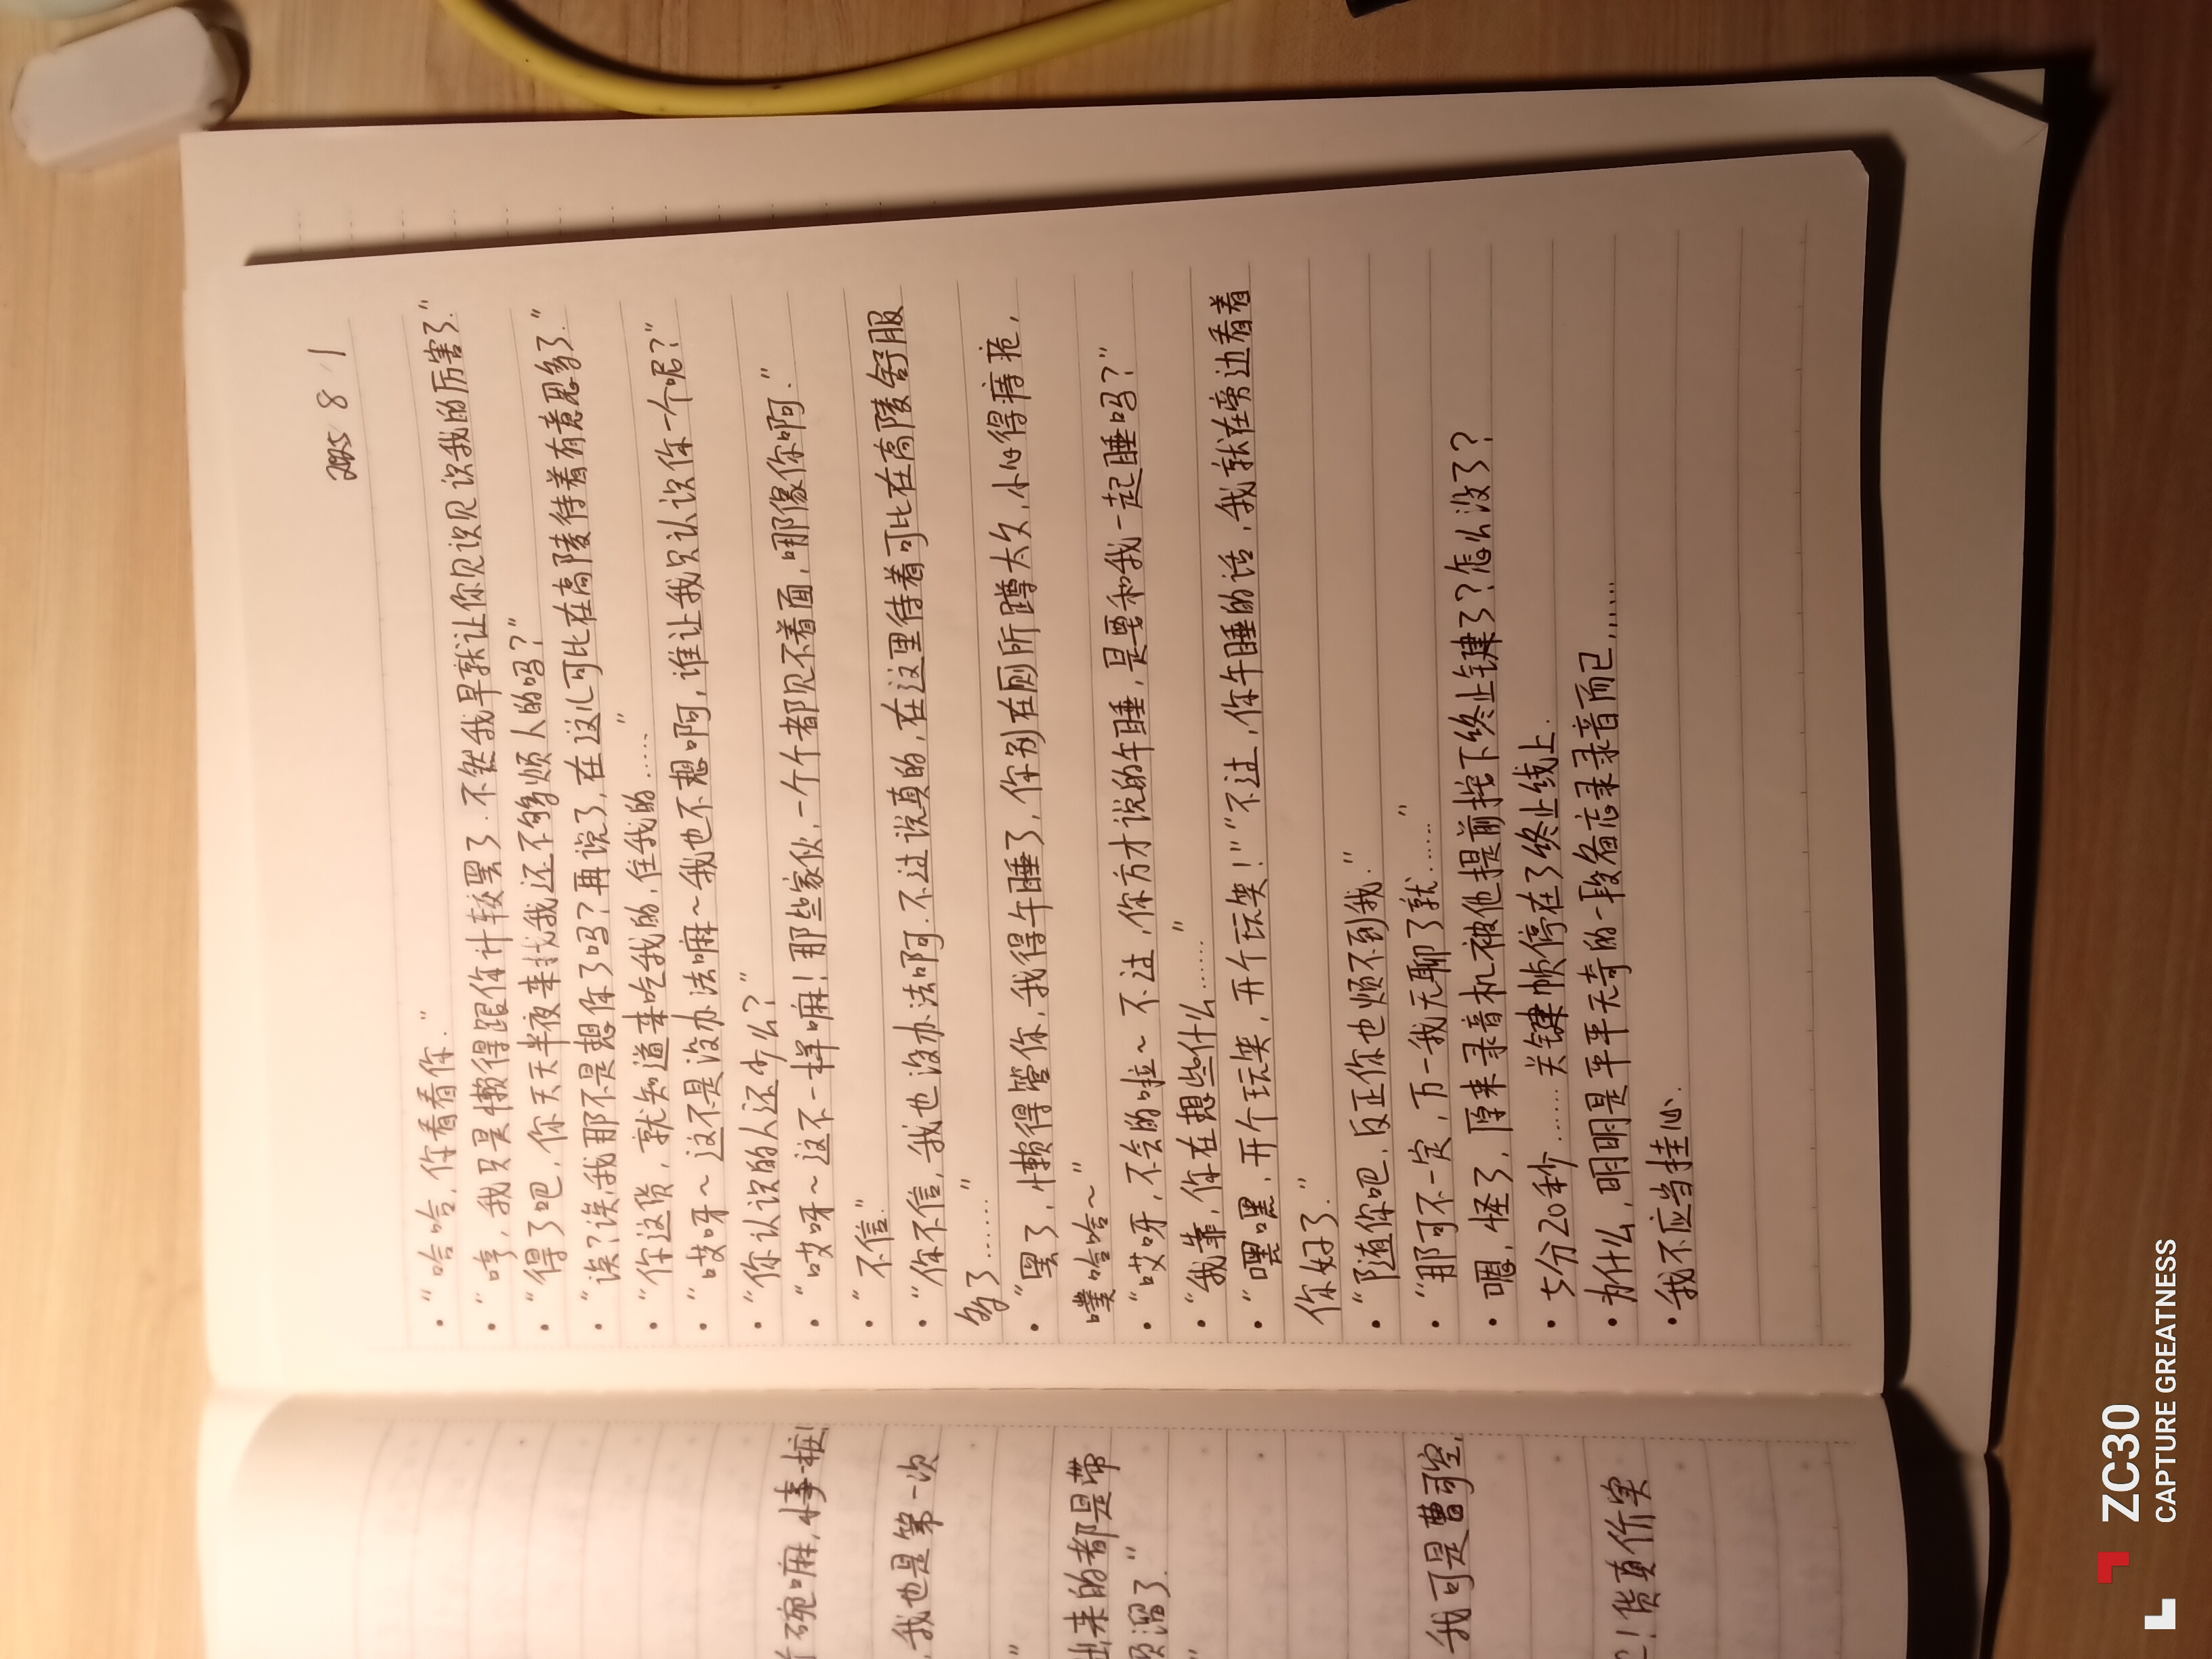 2025 8 1
·“哈哈，你看看你.”
·“哼，我只是懒得跟你计较罢了.不然我早就让你见识见识我的厉害了.”
·“得了吧，你天天半夜来找我还不够烦人的吗？”
·“诶？诶，我那不是想你了吗？再说了，在这儿可比在高陵待着有意思多了.”
·“你这货，就知道来吃我的，住我的……”
·“哎呀～这不是没办法嘛～我也不想啊，谁让我只认识你一个呢？”
·“你认识的人还少么？”
·“哎呀～这不一样嘛！那些家伙，一个个都见不着面，哪像你啊.”
·“不信.”
·“你不信，我也没办法啊.不过说真的，在这里待着可比在高陵舒服
多了……”
·“罢了，懒得管你，我得午睡了，你别在厕所蹲太久，小心得痔疮，
噗哈哈～”
·“哎呀，不会的啦～不过，你方才说的午睡，是要和我一起睡吗？”
·“我靠，你在想些什么……”
·“嘿嘿，开个玩笑，开个玩笑！”“不过，你午睡的话，我就在旁边看着
你好了.”
·“随你吧，反正你也烦不到我.”
·“那可不一定，万一我无聊了就……”
·嗯，怪了，原来录音机被他提前按下终止键了？怎么没了？
·5分20秒……关键帧停在了终止线上.
·为什么，明明是平平无奇的一段备忘录录音而已……
·我不应当挂心.
碗嘛，事框
，我也是第一次
”
出来的都是带
溜了.”
”
我可是曹
！货真价实
ZC30
CAPTURE GREATNESS